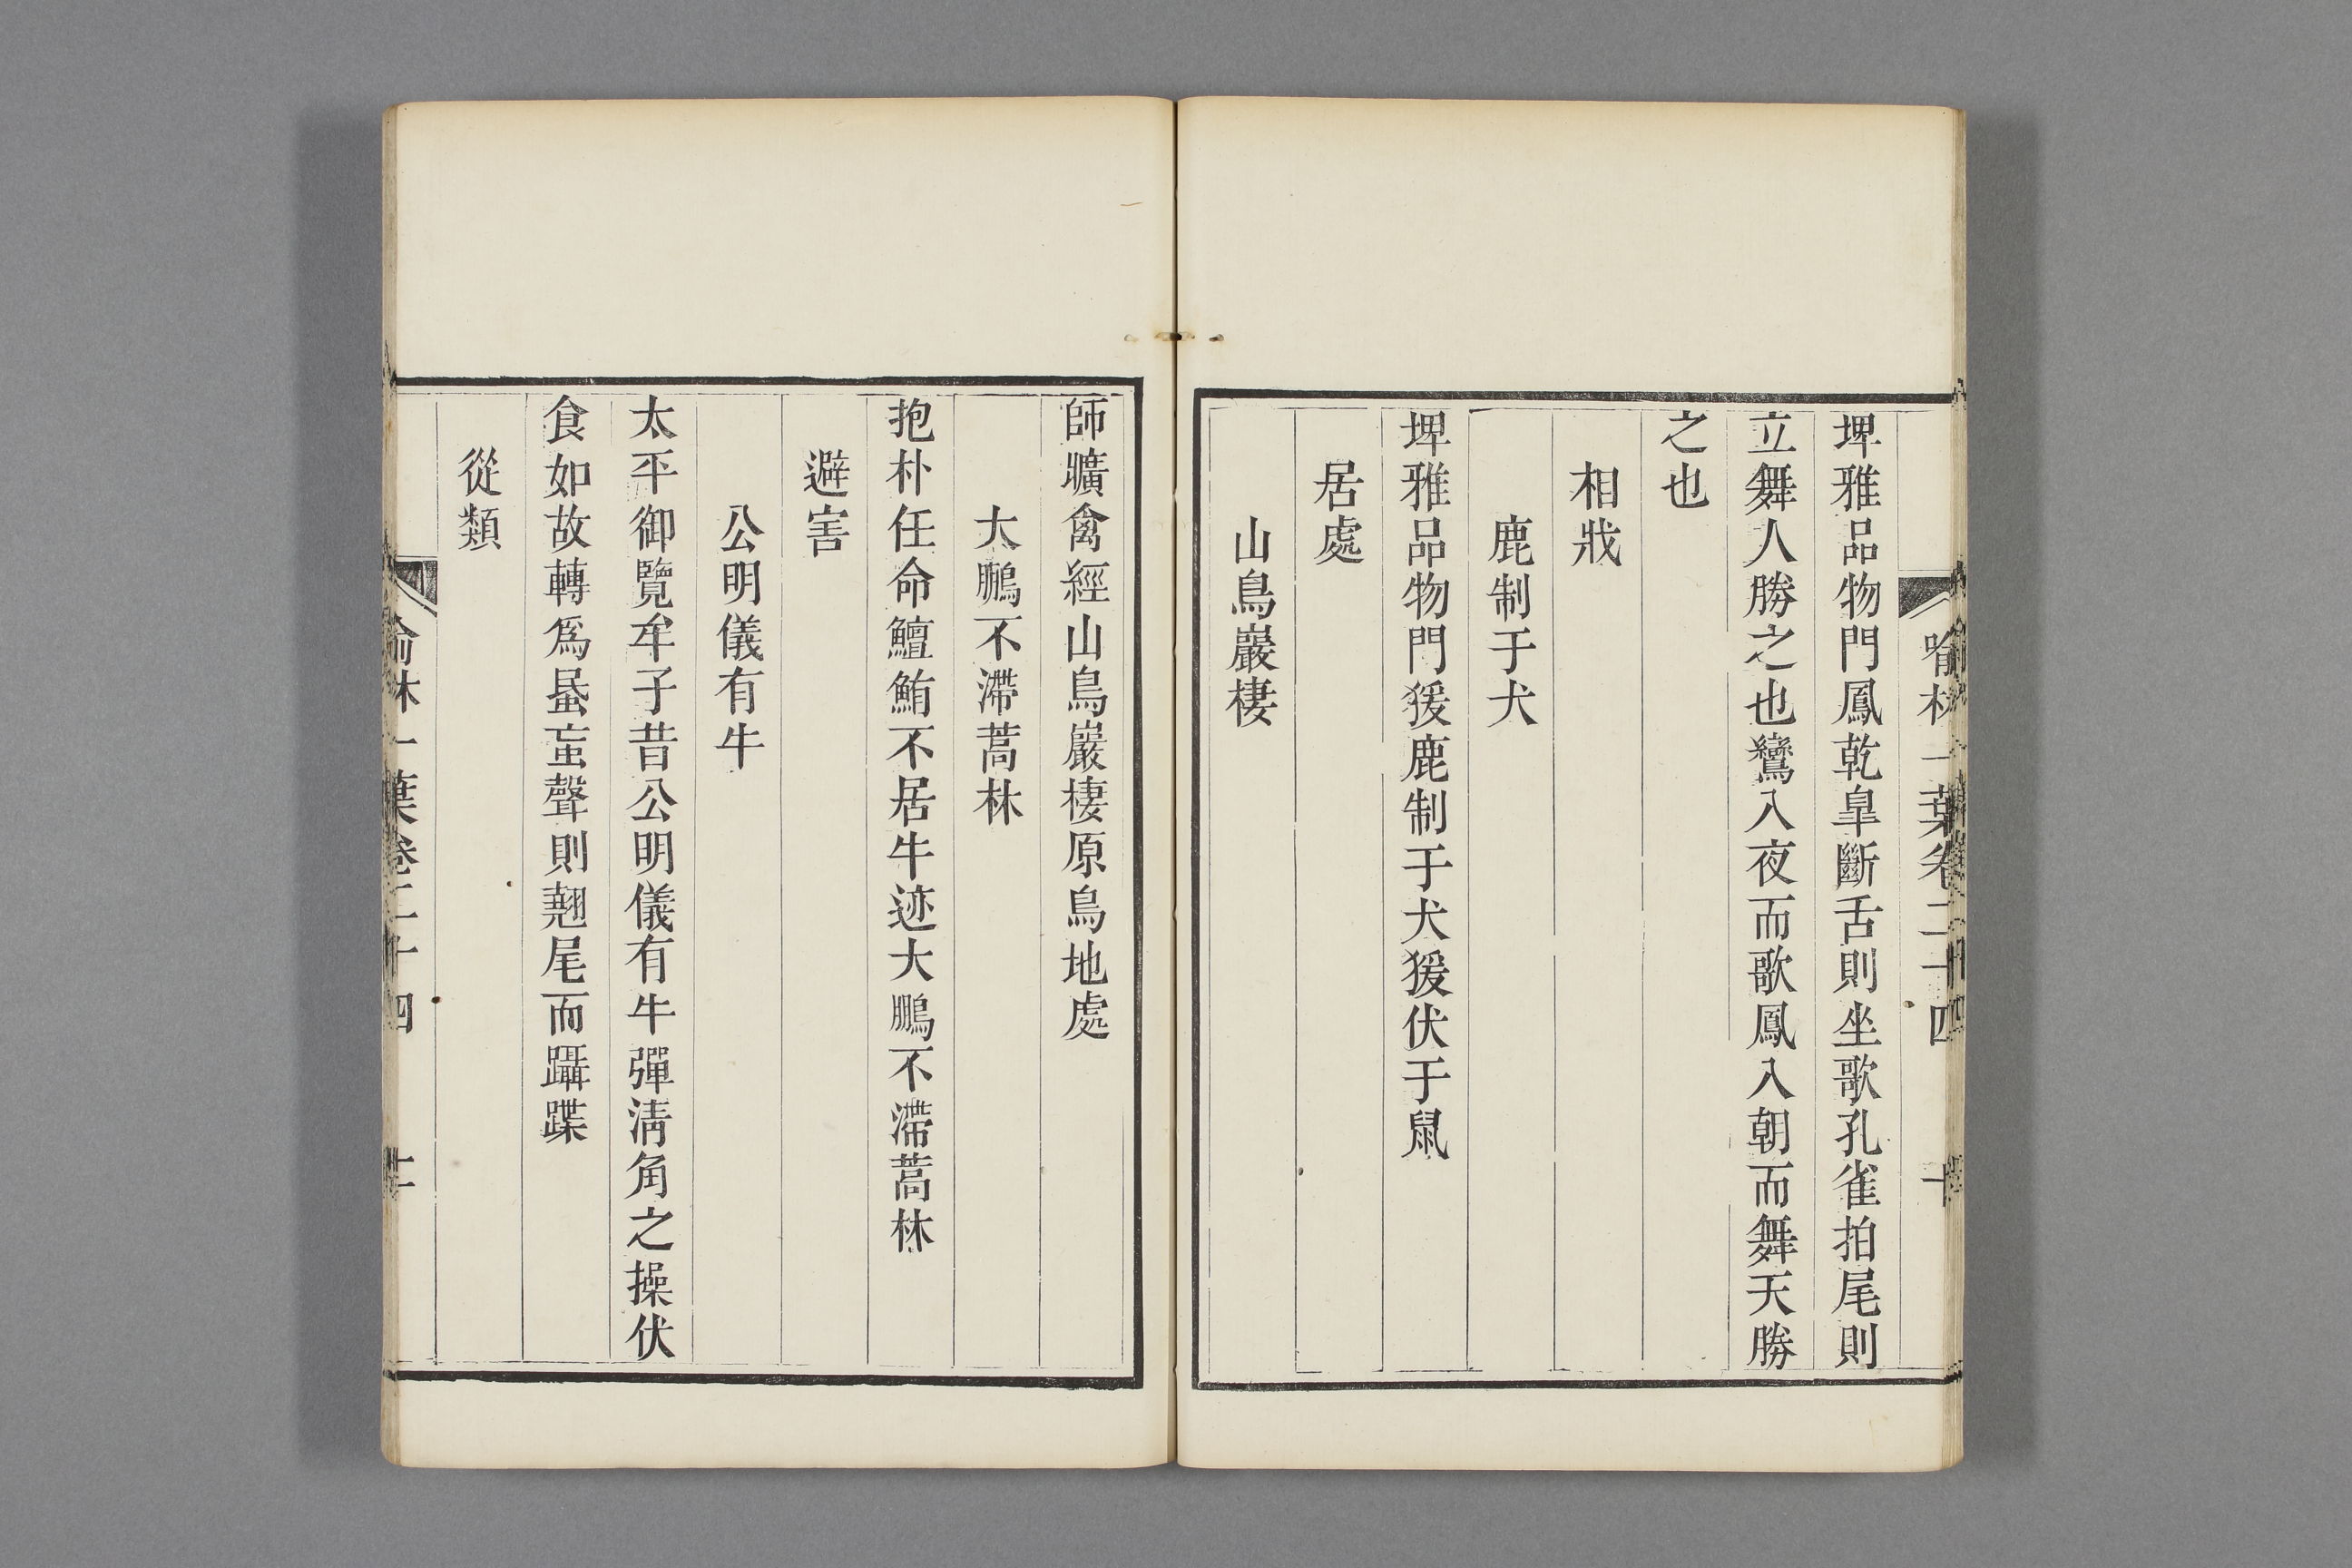 喻林一葉卷二十四 十
埤雅品物門鳳乾皐斷舌則坐歌孔雀拍尾則
立舞人勝之也鸞入夜而歌鳳入朝而舞天勝
之也
相戕
鹿制于犬
埤雅品物門猨鹿制于犬猨伏于鼠
居處
山鳥巖棲
師曠禽經山鳥巖棲原鳥地處
大鵬不滯蒿林
抱朴任命鱣鮪不居牛迹大鵬不滯蒿林
避害
公明儀有牛
太平御覽牟子昔公明儀有牛彈清角之操伏
食如故轉爲䖟䖟聲則翹尾而躡蹀
從類
喻林一葉卷二十四